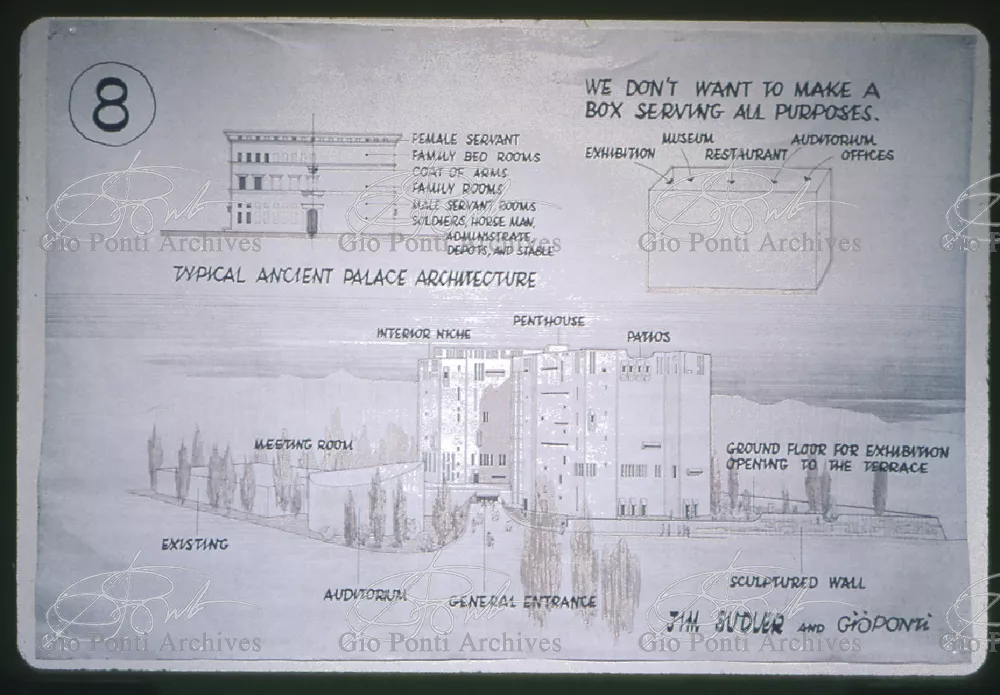 8
WE DON'T WANT TO MAKE A
BOX SERVING ALL PURPOSES.
MUSEUM
AUDITORIUM
EXHIBITION
RESTAURANT
OFFICES
FEMALE SERVANT
FAMILY BED ROOMS
COAT OF ARMS
FAMILY ROOMS
MALE SERVANT ROOMS
SOLDIERS, HORSE MAN,
ADMINISTRATE,
DEPOTS, AND STABLE
Gio Ponti Archives
Gio Ponti Archives
Gio Ponti Archives
TYPICAL ANCIENT PALACE ARCHITECTURE
INTERIOR NICHE
PENTHOUSE
PATIOS
MEETING ROOM
GROUND FLOOR FOR EXHIBITION
OPENING TO THE TERRACE
EXISTING
AUDITORIUM
GENERAL ENTRANCE
SCULPTURED WALL
JIM SUDLER AND GIO PONTI
Gio Ponti Archives
Gio Ponti Archives
Gio Ponti Archives